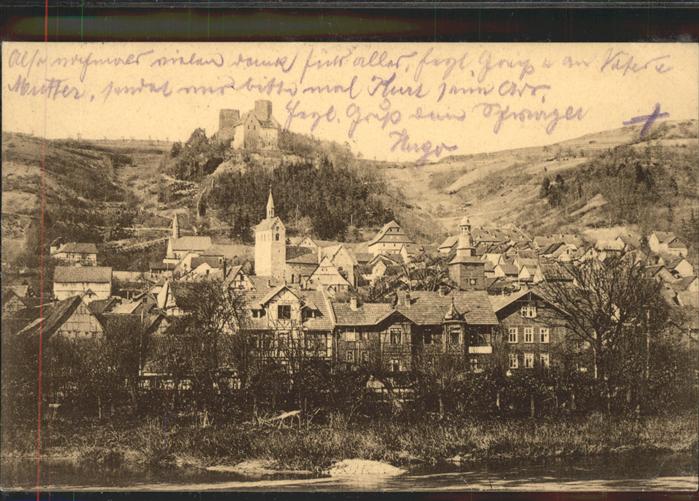 Also nochmals vielen Dank für alles, herzl. Gruß u. an Vater u.
Mutter, sendet uns bitte mal Kurt seine Adr.
Herzl. Gruß dein Schwager
Hugo